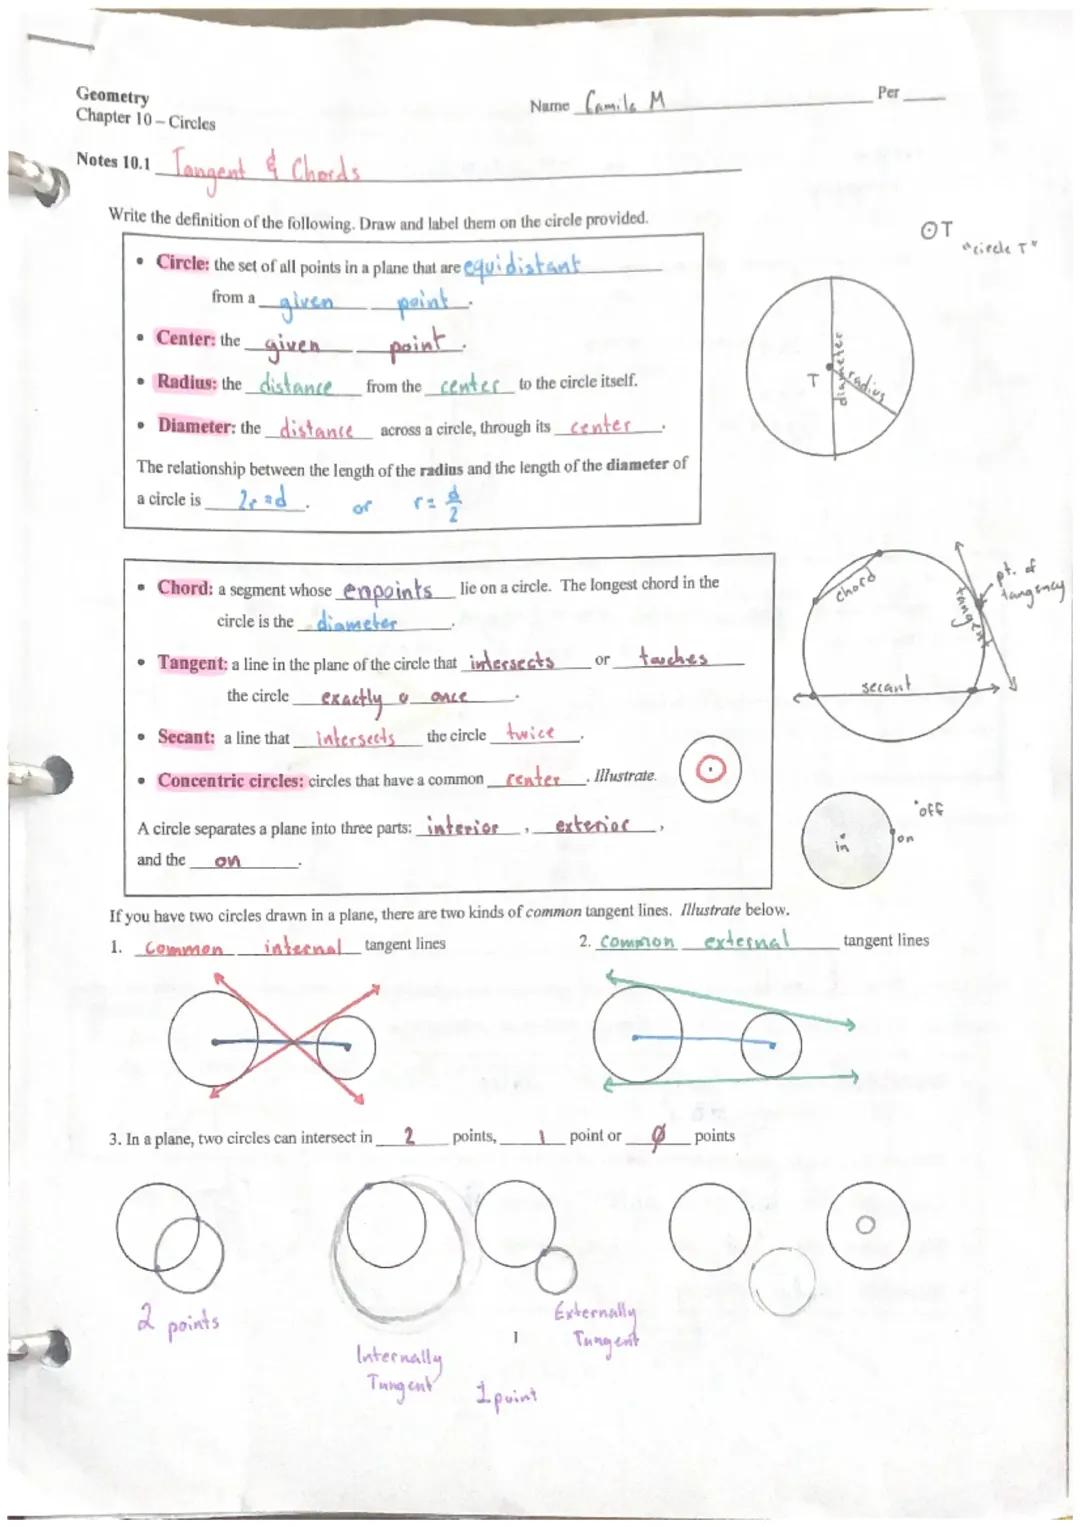 Geometry
Name Camila M Per
Chapter 10 – Circles
Notes 10.1 Tangent & Chords
Write the definition of the following. Draw and label them on the circle provided.
⊙T
"circle T"
• Circle: the set of all points in a plane that are equidistant
from a given point.
• Center: the given point.
• Radius: the distance from the center to the circle itself.
• Diameter: the distance across a circle, through its center.
The relationship between the length of the radius and the length of the diameter of
a circle is 2r=d. or r = d/2
T
diameter
radius
• Chord: a segment whose enpoints lie on a circle. The longest chord in the
circle is the diameter.
• Tangent: a line in the plane of the circle that intersects or touches
the circle exactly once.
• Secant: a line that intersects the circle twice.
• Concentric circles: circles that have a common center. Illustrate.
A circle separates a plane into three parts: interior, exterior,
and the on.
chord
tangent
pt. of
tangency
secant
in
on
off
If you have two circles drawn in a plane, there are two kinds of common tangent lines. Illustrate below.
1. Common internal tangent lines
2. Common external tangent lines
3. In a plane, two circles can intersect in 2 points, 1 point or Ø points
2 points
Internally
Tangent
1 point
Externally
Tangent
1